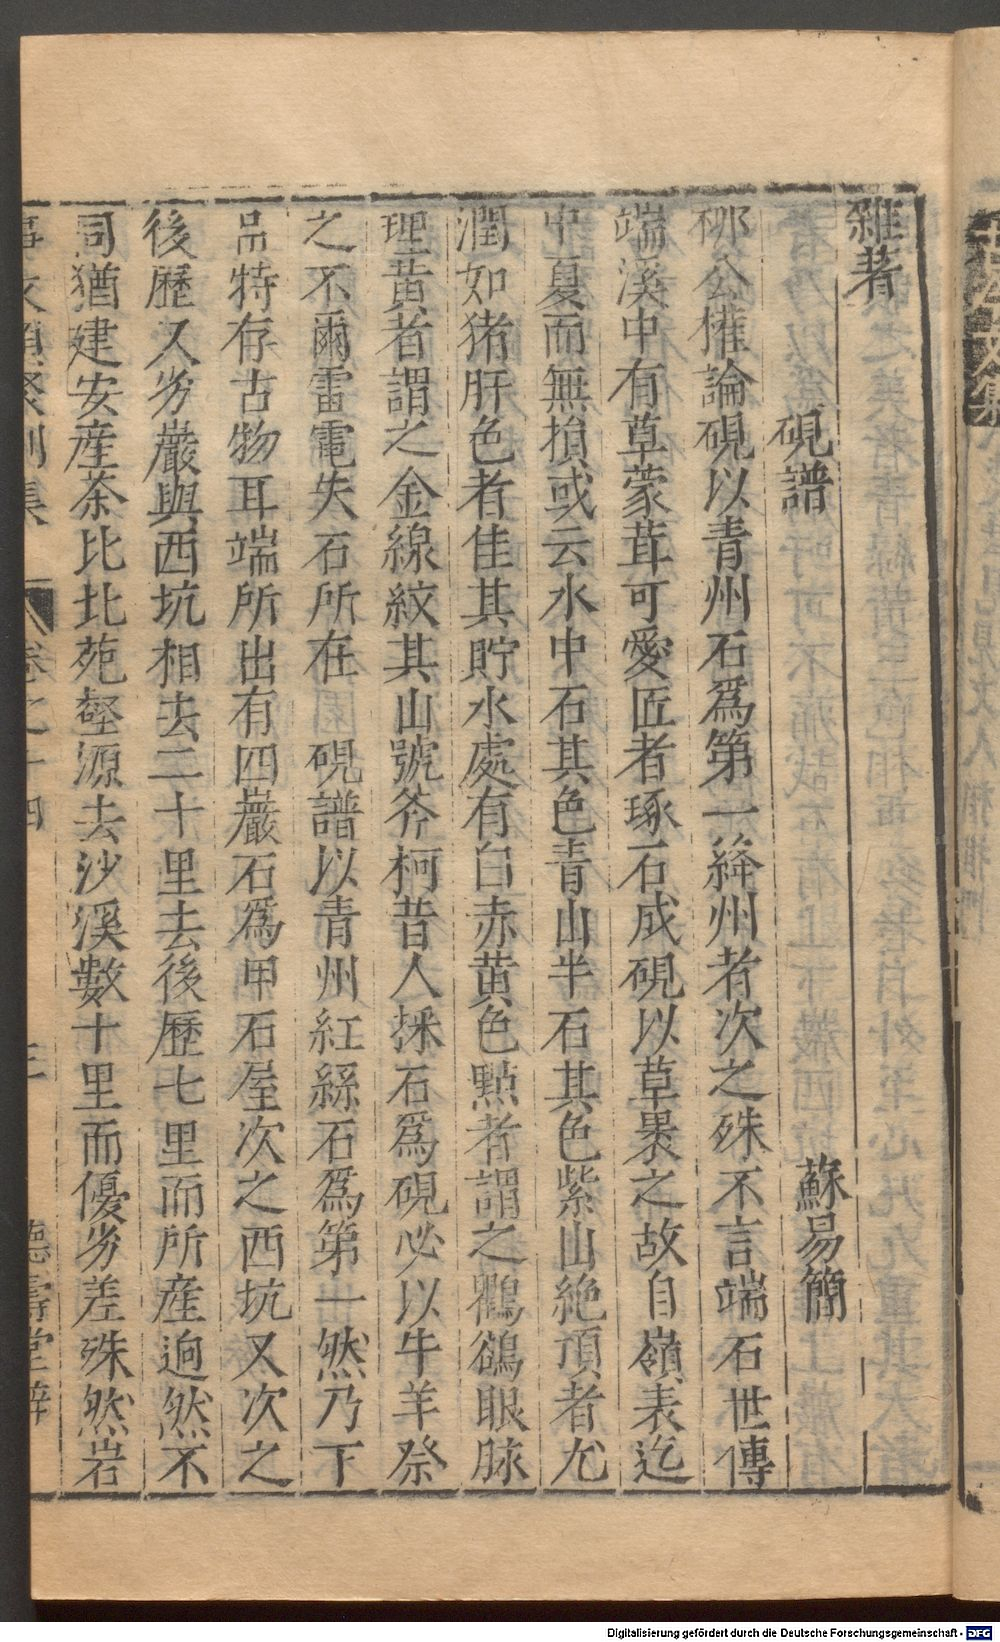 雜者
硯譜　蘇易簡
柳公權論硯以青州石爲第一絳州者次之殊不言端石世傳
端溪中有草蒙茸可愛匠者琢石成硯以草裹之故自嶺表迄
中夏而無損或云水中石其色青山半石其色紫山絶頂者尤
潤如猪肝色者佳其貯水處有白赤黄色點者謂之鸜鵒眼脉
理黄者謂之金線紋其山號斧柯昔人採石爲硯必以牛羊祭
之不爾雷電失石所在　硯譜以青州紅絲石爲第一然乃下
品特存古物耳端所出有四巖石爲甲石屋次之西坑又次之
後歷又劣巖與西坑相去二十里去後歷七里而所産逈然不
同猶建安産茶比北苑壑源去沙溪數十里而優劣差殊然岩
事文類聚別集　卷之十四　三　德壽堂梓
Digitalisierung gefördert durch die Deutsche Forschungsgemeinschaft - DFG